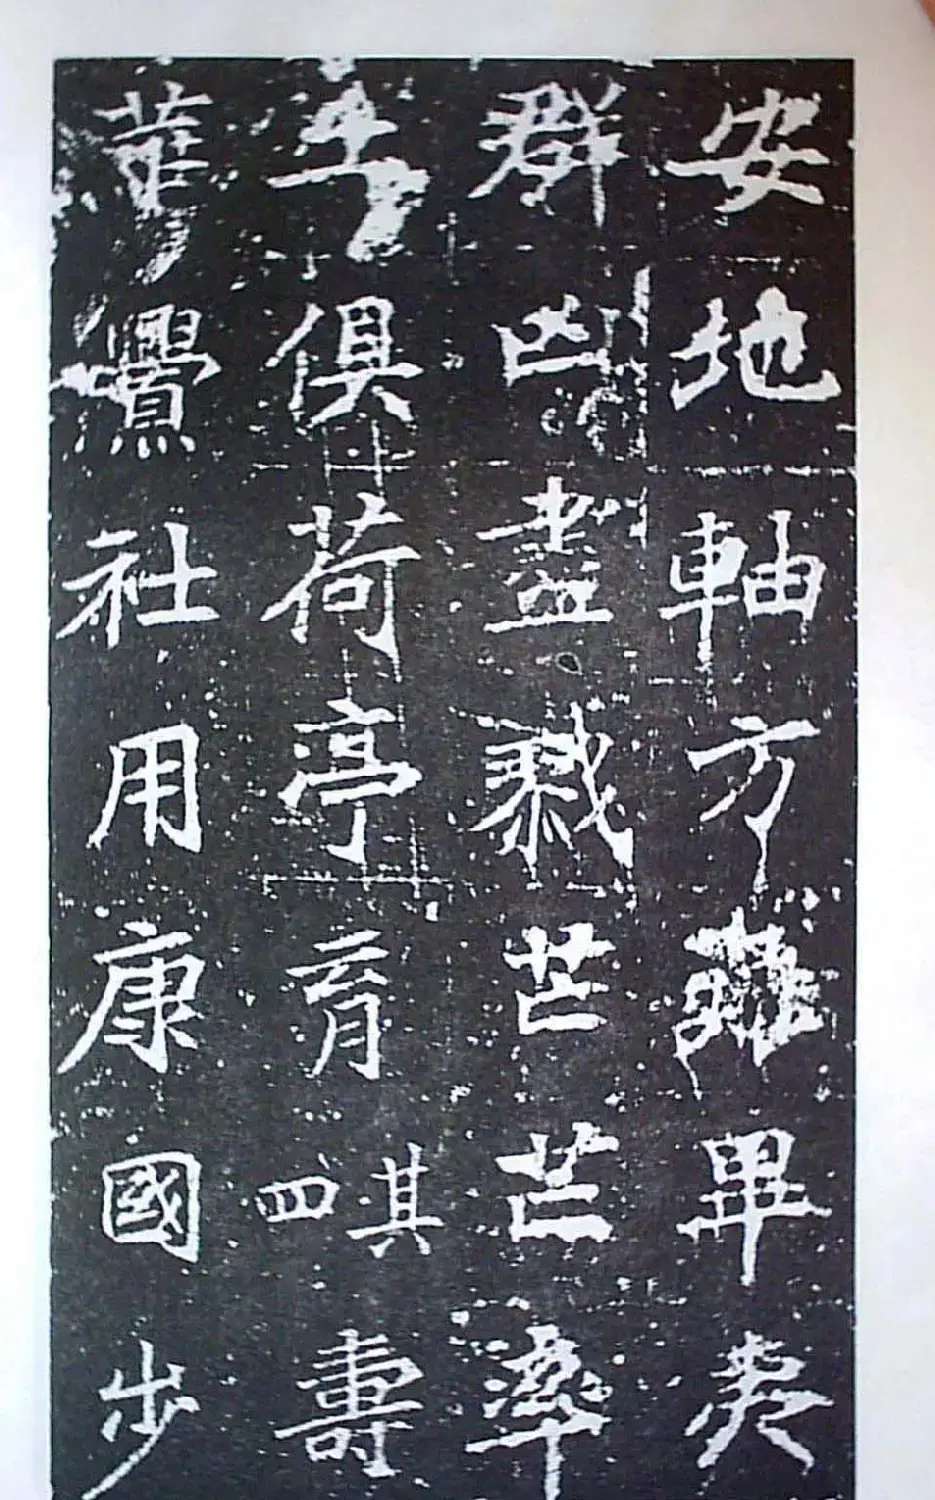 安地軸方畢夷
群凶盡戮芒芒率
土俱荷亭育其四壽
華舋社用康國步